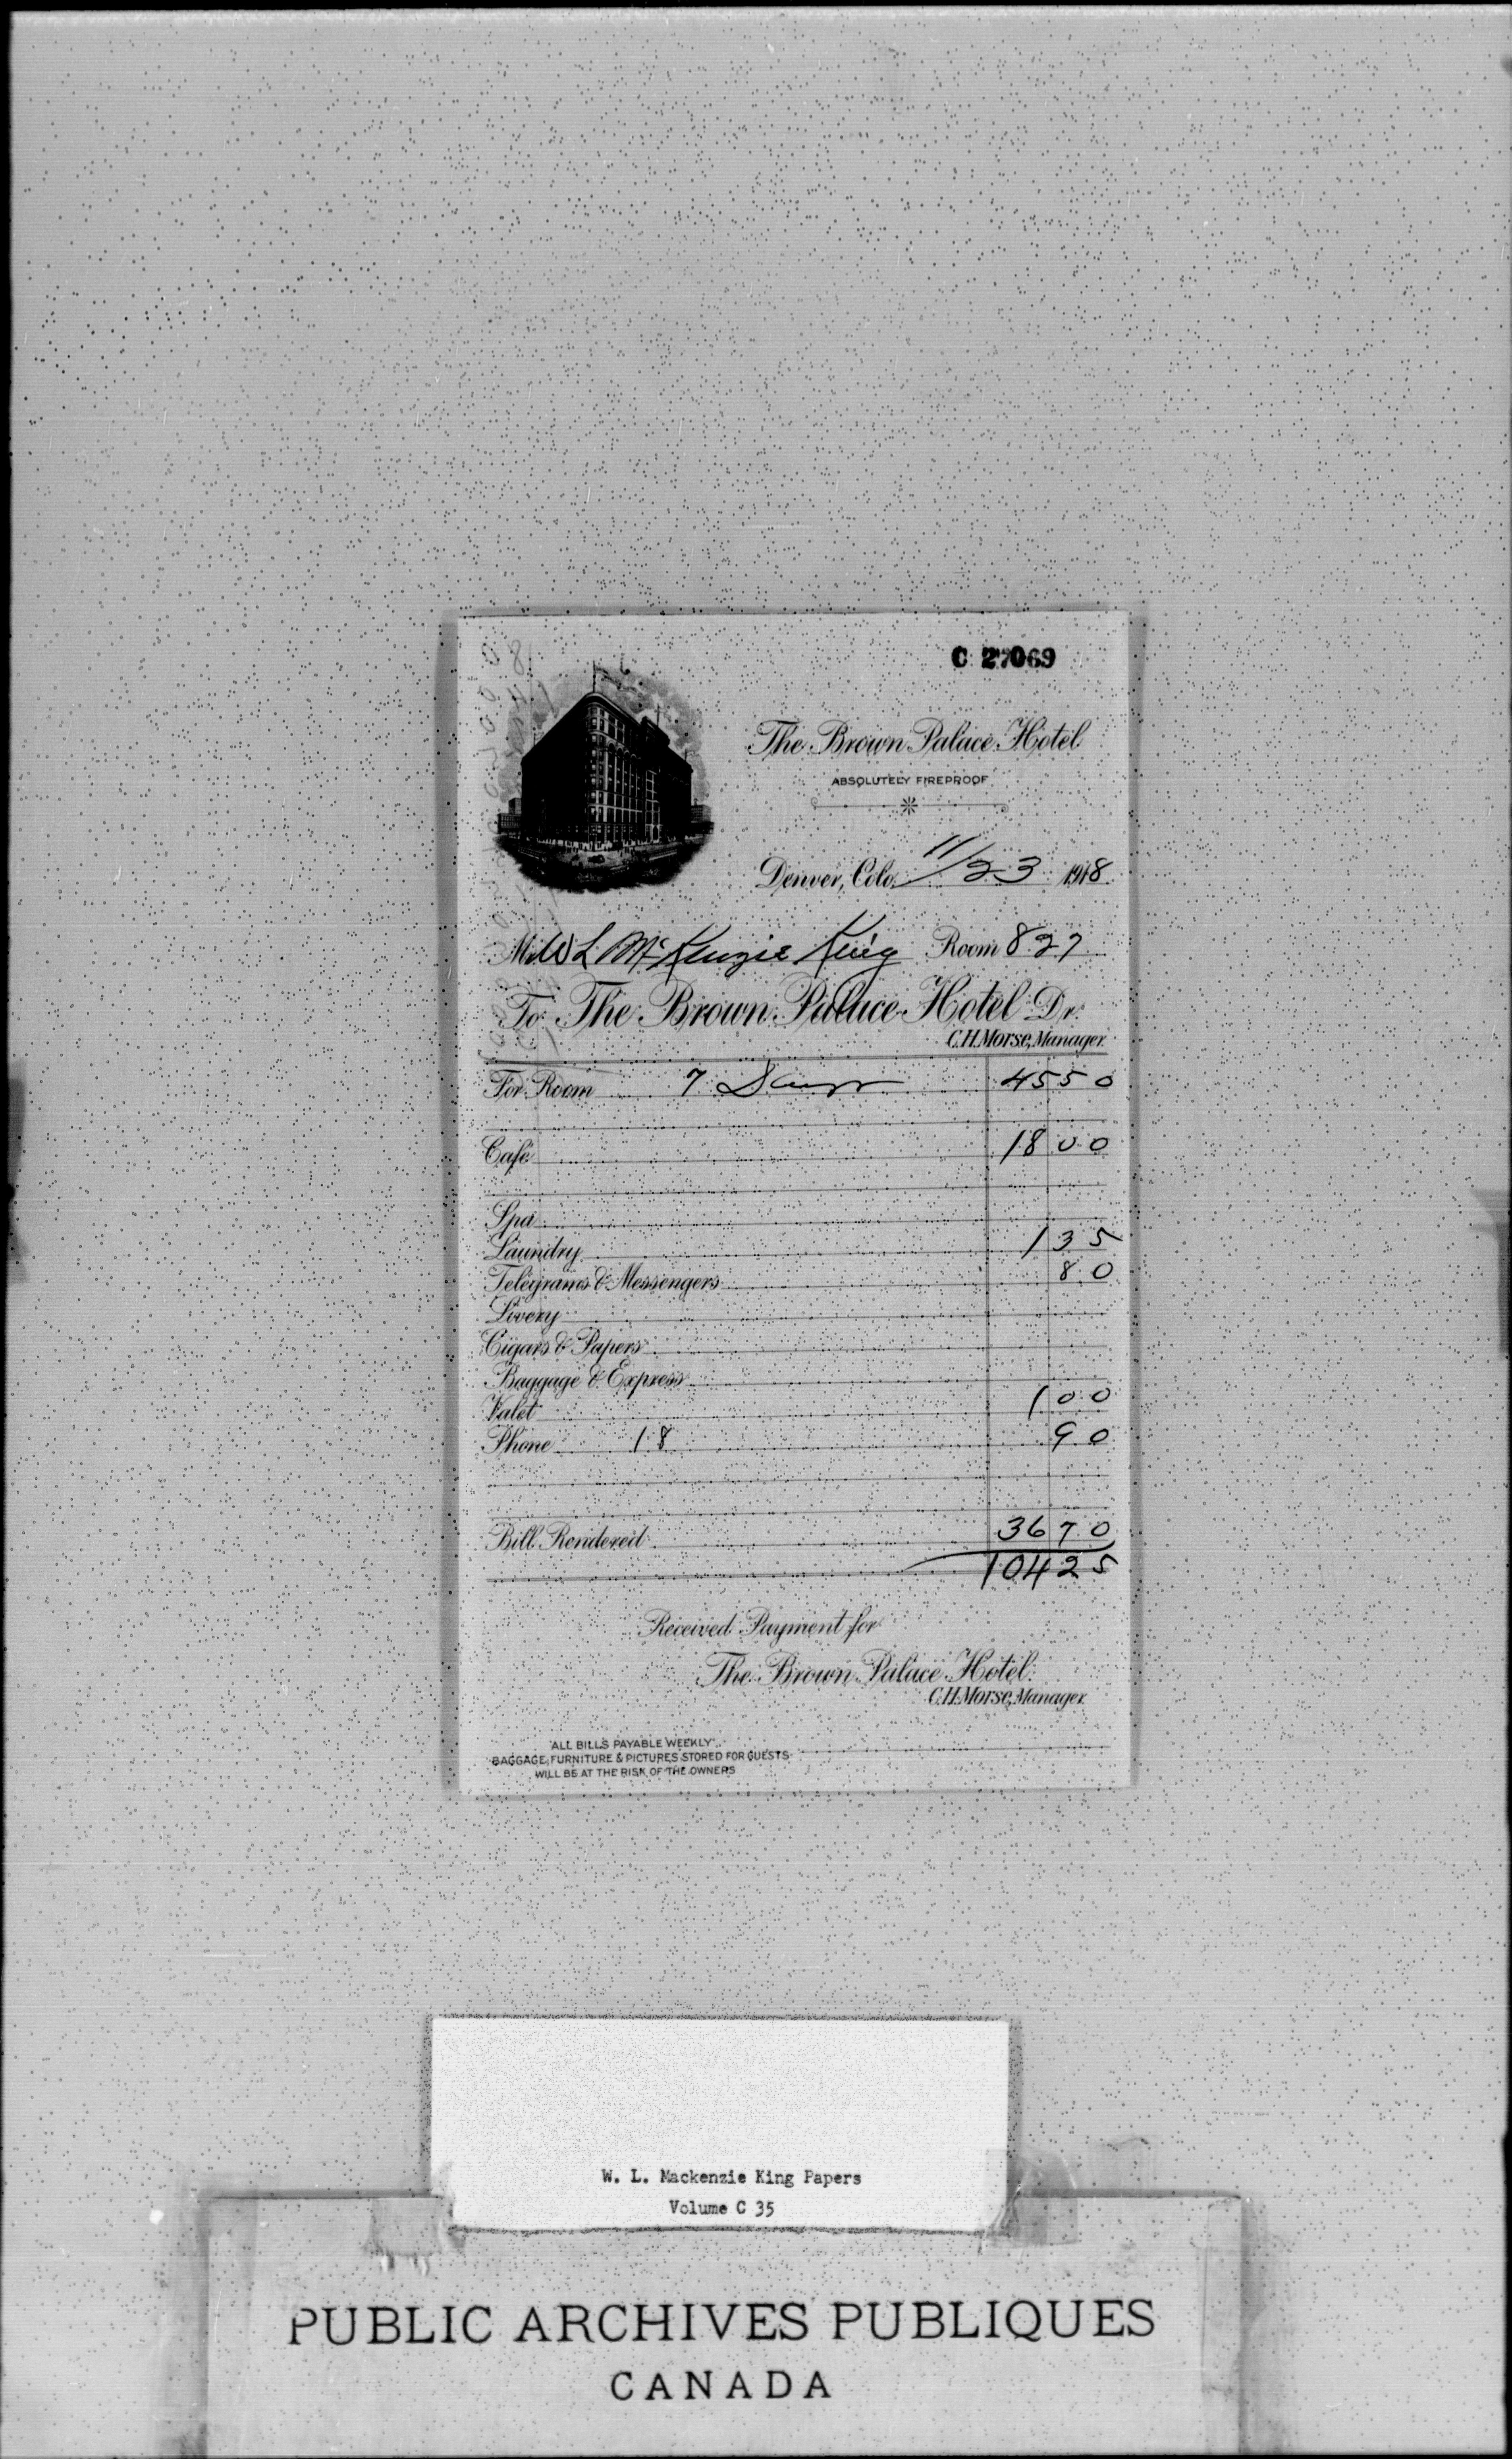 C 27069
The Brown Palace Hotel
ABSOLUTELY FIREPROOF
Denver, Colo. 11/23 1918
Mr W L McKenzie King Room 827
To The Brown Palace Hotel Dr.
C.H. Morse, Manager.
For Room 7 Days 45 50
Café 18 00
Spa
Laundry 1 35
Telegrams & Messengers 80
Livery
Cigars & Papers
Baggage & Express
Valet 1 00
Phone 18 90
Bill Rendered 36 70
104 25
Received Payment for
The Brown Palace Hotel.
C.H. Morse, Manager.
ALL BILLS PAYABLE WEEKLY
BAGGAGE, FURNITURE & PICTURES STORED FOR GUESTS
WILL BE AT THE RISK OF THE OWNERS
W. L. Mackenzie King Papers
Volume C 35
PUBLIC ARCHIVES PUBLIQUES
CANADA